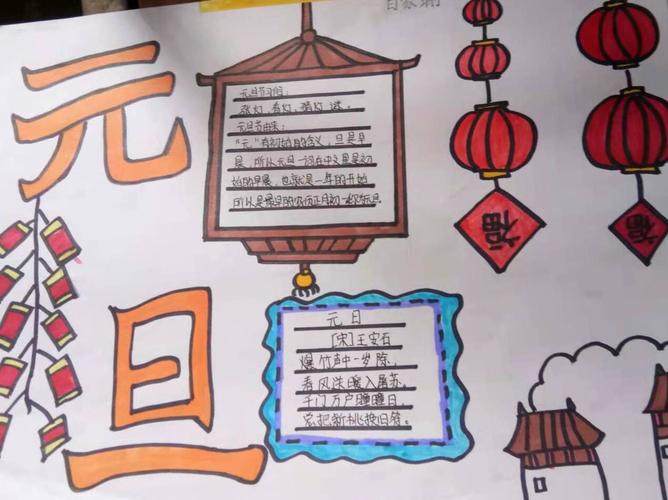 元旦
元旦节习俗:
张灯、看灯、猜灯谜。
元旦节由来:
“元”有初始的含义,旦是早
晨,所以元旦一词在中文里是初
始的早晨,也就是一年的开始
所以是最早的农历正月初一
元日
[宋]王安石
爆竹声中一岁除,
春风送暖入屠苏,
千门万户瞳瞳日,
总把新桃换旧符。
福
福